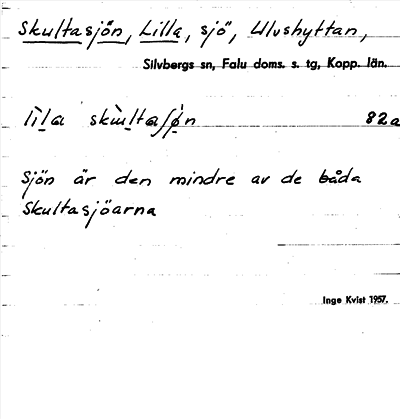 Skultasjön, Lilla, sjö, Ulvshyttan,
Silvbergs sn, Falu doms. s. tg, Kopp. län.
82a
Sjön är den mindre av de båda
Skultasjöarna
Inge Kvist 1957.